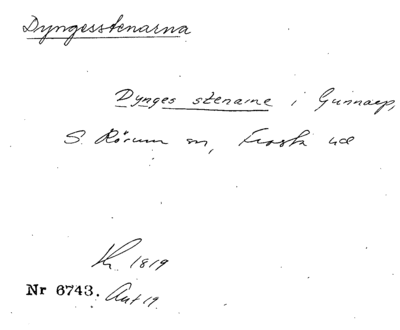 Dyngesstenarna
Dynges stename i Gunnarp,
S. Rörum sn, Frosta hd
1819
Nr 6743. Ant 19.